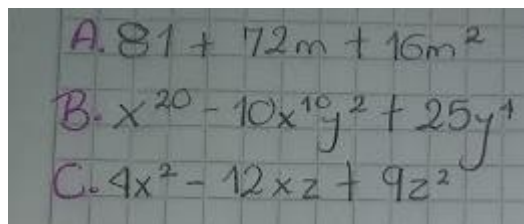 A. 81 + 72m + 16m²
B. x²⁰ - 10x¹⁰y² + 25y⁴
C. 4x² - 12xz + 9z²